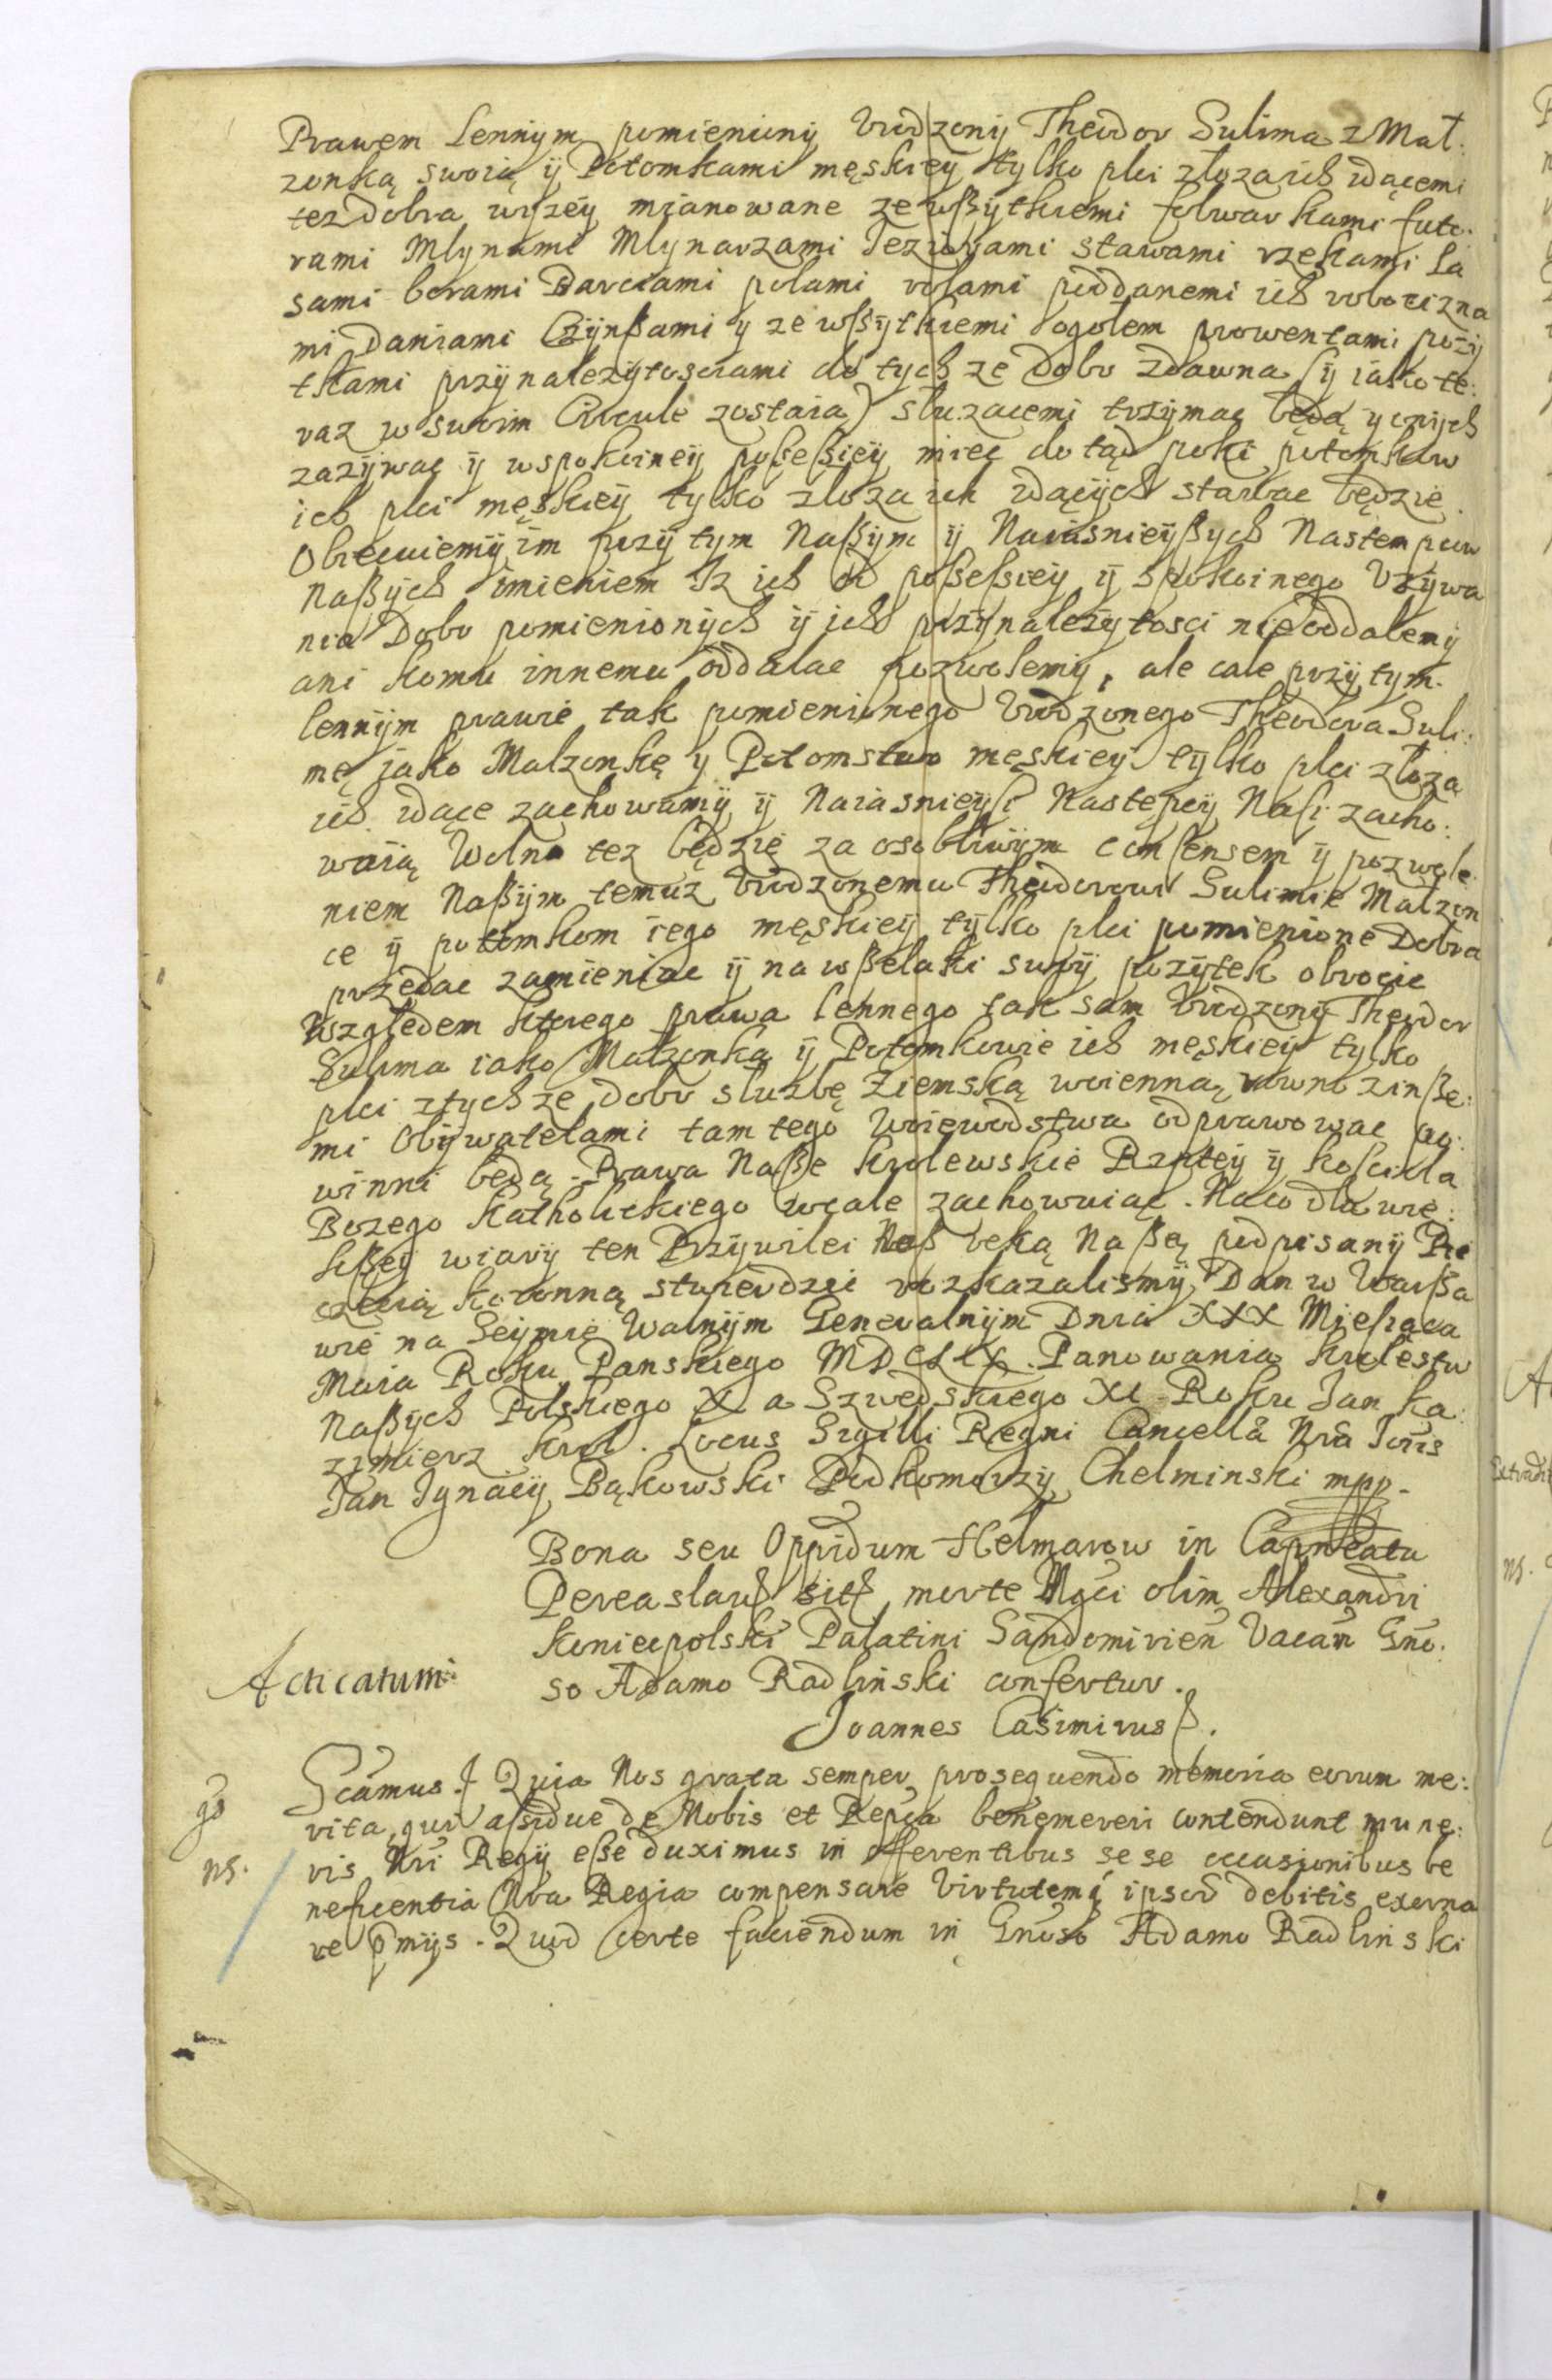 Prawem Lennym pomieniony Vrodzony Theodor Sulima z Mał:
zonką swoią y Potomkami męskiey tylko płci złoza ich idącemi
tez dobra wyzey mianowane ze wßytkiemi folwarkami futo:
rami Mlynami Mlynarzami Jeziorami stawami rzekami La
sami borami Barciami polami rolami poddanemi ich robocizna
mi Daniami Czynßami y ze wßytkiemi ogolem prowentami pozy
tkami przynalezytosciami do tych ze Dobr zdawna (y iako te:
raz w swoim Circule zostaia) sluzacemi trzymac będą y onych
zazywac y wspokoiney poseßiey miec do tąd poki potomkow
ich płci męskiey tylko zloza ich idących stawac będzie
Obiecuiemy im przy tym Naßym y Naiasnieyßych Nastempcow
Naßych imieniem Iz ich od poseßiey y spokoinego Vzywa
nia Dobr pomienionych y ich przynalezytosci nie oddalemy
ani komu innemu oddalac pozwolemy, ale cale przy tym
lennym prawie tak pomienionego Vrodzonego Theodora Suli:
mę jako Malzonkę y Potomstwo męskiey tylko płci złoza
ich idące zachowamy y Naiasnieysi Następcy Nasi zacho:
waią Wolno tez będzie za osobliwym consensem y pozwole
niem Naßym temuz Vrodzonemu Theodorowi Sulimie Malzon
ce y potomkom iego męskiey tylko płci pomienione Dobra
przedac zamieniac y na wßelaki swoy pozytek obrocic
Względem ktorego prawa lennego tak sam Vrodzony Theodor
Sulima iako Malzonka y Potomkowie ich męskiey tylko
plci z tych ze dobr sluzbę Ziemską woienną rowno z inße:
mi Obywatelami tam tego Woiewodstwa odprawowac po:
winni będą. Prawa Naße Krolewskie Rzptey y Kosciola
Bozego Katholickiego wcale zachowuiąc. Naco dla wię:
kßey wiary ten Przywilei Naß ręką Naßą podpisany Pie
częcią koronną stwierdzic rozkazalismy Dan w Warßa
wie na Seymie Walnym Generalnym Dnia XXX Miesiąca
Maia Roku Panskiego MDCLIX. Panowania krolestw
Naßych Polskiego X a Szwedskiego XI Roku Jan Ka:
zimierz Krol. Locus Sigilli Regni Cancella Nra Joris
Jan Ignacy Bąkowski Podkomorzy Chelminski mpp.
Bona seu Oppidum Helmarow in Capneatu
Pereaslau sit morte Mgci olim Alexandri
Koniecpolski Palatini Sandomirien Vacan Gno:
Acticatum so Adamo Radlinski confertur.
Joannes Casimirus
Scamus Quia Nos grata semper prosequendo memoria eorum me:
go rita, qui assidue de Nobis et Repca benemereri contendunt mune:
ns. ris Nri Regij esse duximus in offerentibus sese occasionibus be
neficentia Nra Regia compensare Virtutemq ipsor debitis exorna
re pmijs. Quod certe faciendum in Gnoso Adamo Radlinski